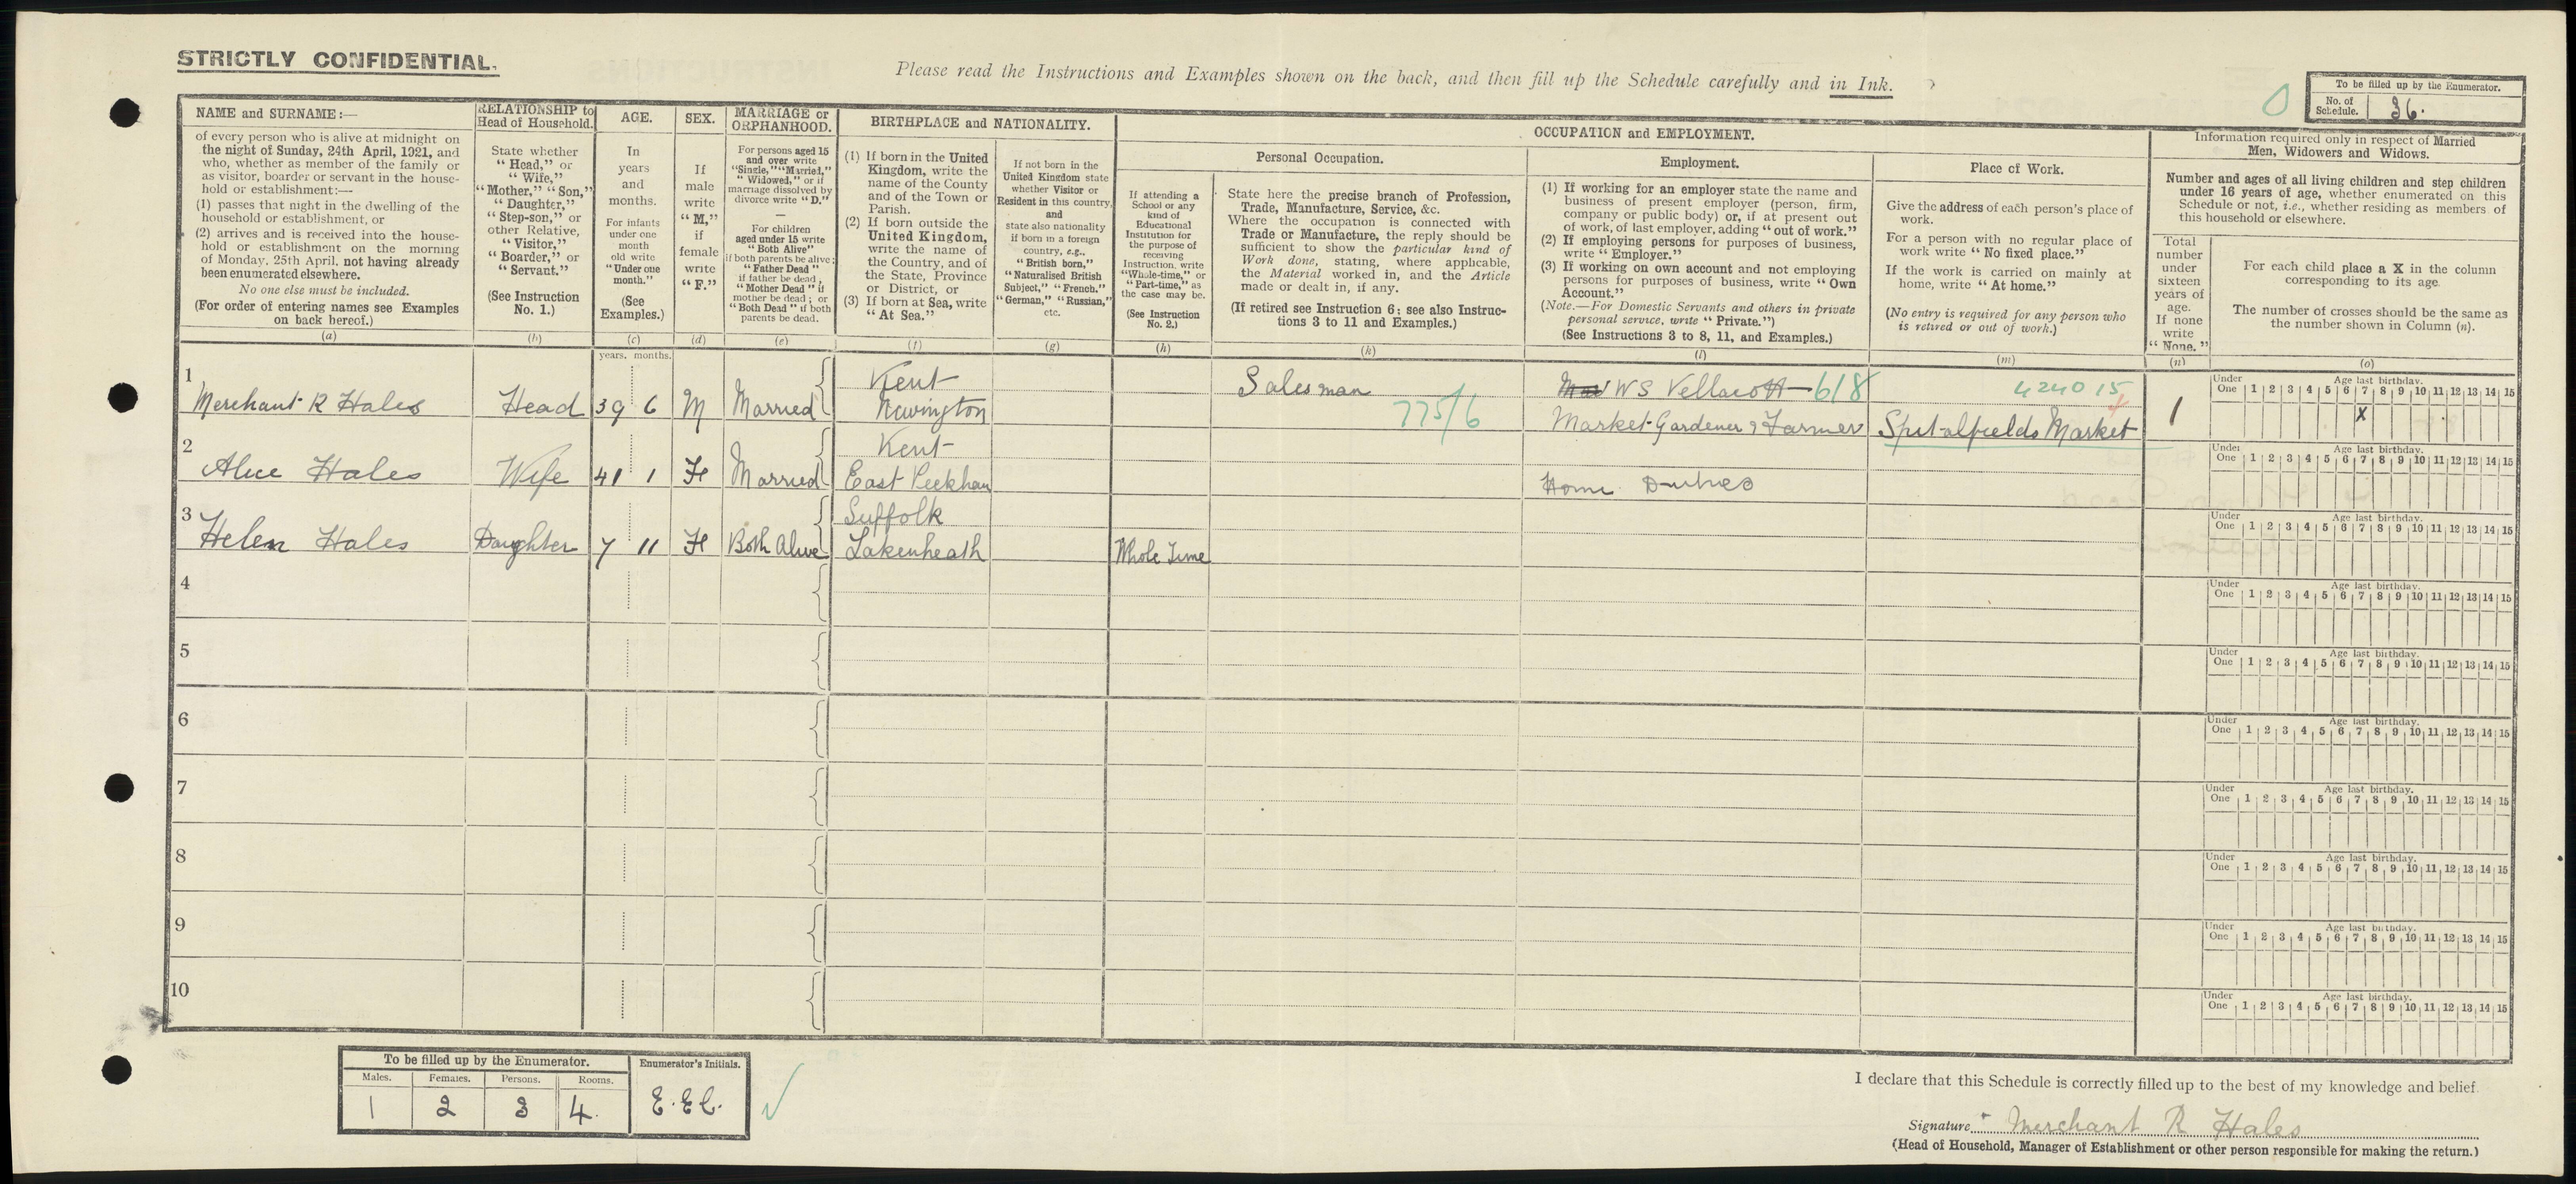 STRICTLY CONFIDENTIAL.
Please read the Instructions and Examples shown on the back, and then fill up the Schedule carefully and in Ink.
To be filled up by the Enumerator.
No. of Schedule. 36.
NAME and SURNAME:—
of every person who is alive at midnight on
the night of Sunday, 24th April, 1921, and
who, whether as member of the family or
as visitor, boarder or servant in the house-
hold or establishment:—
(1) passes that night in the dwelling of the
household or establishment, or
(2) arrives and is received into the house-
hold or establishment on the morning
of Monday, 25th April, not having already
been enumerated elsewhere.
No one else must be included.
(For order of entering names see Examples
on back hereof.)
(a)
RELATIONSHIP to
Head of Household.
State whether
"Head," or
"Wife,"
"Mother," "Son,"
"Daughter,"
"Step-son," or
other Relative,
"Visitor,"
"Boarder," or
"Servant."
(See Instruction
No. 1.)
(b)
AGE.
In
years
and
months.
For infants
under one
month
old write
"Under one
month."
(See
Examples.)
(c)
years. months.
SEX.
If
male
write
"M,"
if
female
write
"F."
(d)
MARRIAGE or
ORPHANHOOD.
For persons aged 15
and over write
"Single," "Married,"
"Widowed," or if
marriage dissolved by
divorce write "D."
—
For children
aged under 15 write
"Both Alive"
if both parents be alive;
"Father Dead"
if father be dead,
"Mother Dead" if
mother be dead; or
"Both Dead" if both
parents be dead.
(e)
BIRTHPLACE and NATIONALITY.
(1) If born in the United
Kingdom, write the
name of the County
and of the Town or
Parish.
(2) If born outside the
United Kingdom,
write the name of
the Country, and of
the State, Province
or District, or
(3) If born at Sea, write
"At Sea."
(f)
If not born in the
United Kingdom state
whether Visitor or
Resident in this country,
and
state also nationality
if born in a foreign
country, e.g.,
"British born,"
"Naturalised British
Subject," "French."
"German," "Russian,"
etc.
(g)
OCCUPATION and EMPLOYMENT.
Personal Occupation.
If attending a
School or any
kind of
Educational
Institution for
the purpose of
receiving
Instruction, write
"Whole-time," or
"Part-time," as
the case may be.
(See Instruction
No. 2.)
(h)
State here the precise branch of Profession,
Trade, Manufacture, Service, &c.
Where the occupation is connected with
Trade or Manufacture, the reply should be
sufficient to show the particular kind of
Work done, stating, where applicable,
the Material worked in, and the Article
made or dealt in, if any.
(If retired see Instruction 6; see also Instruc-
tions 3 to 11 and Examples.)
(k)
Employment.
(1) If working for an employer state the name and
business of present employer (person, firm,
company or public body) or, if at present out
of work, of last employer, adding "out of work."
(2) If employing persons for purposes of business,
write "Employer."
(3) If working on own account and not employing
persons for purposes of business, write "Own
Account."
(Note.—For Domestic Servants and others in private
personal service, write "Private.")
(See Instructions 3 to 8, 11, and Examples.)
(l)
Place of Work.
Give the address of each person's place of
work.
For a person with no regular place of
work write "No fixed place."
If the work is carried on mainly at
home, write "At home."
(No entry is required for any person who
is retired or out of work.)
(m)
Information required only in respect of Married
Men, Widowers and Widows.
Number and ages of all living children and step children
under 16 years of age, whether enumerated on this
Schedule or not, i.e., whether residing as members of
this household or elsewhere.
Total
number
under
sixteen
years of
age.
If none
write
"None."
(n)
For each child place a X in the column
corresponding to its age.
The number of crosses should be the same as
the number shown in Column (n).
(o)
1
Merchant R Hales Head 39 6 M Married Kent
Newington
Salesman 775/6
W S Vellacott 618
Market Gardener & Farmer
424015
Spitalfields Market
1
Under One 1 2 3 4 5 6 7 8 9 10 11 12 13 14 15
Age last birthday.
X
2
Alice Hales Wife 41 1 F Married Kent
East Peckham
Home Duties
Under One 1 2 3 4 5 6 7 8 9 10 11 12 13 14 15
Age last birthday.
3
Helen Hales Daughter 7 11 F Both Alive Suffolk
Lakenheath
Whole Time
Under One 1 2 3 4 5 6 7 8 9 10 11 12 13 14 15
Age last birthday.
4
Under One 1 2 3 4 5 6 7 8 9 10 11 12 13 14 15
Age last birthday.
5
Under One 1 2 3 4 5 6 7 8 9 10 11 12 13 14 15
Age last birthday.
6
Under One 1 2 3 4 5 6 7 8 9 10 11 12 13 14 15
Age last birthday.
7
Under One 1 2 3 4 5 6 7 8 9 10 11 12 13 14 15
Age last birthday.
8
Under One 1 2 3 4 5 6 7 8 9 10 11 12 13 14 15
Age last birthday.
9
Under One 1 2 3 4 5 6 7 8 9 10 11 12 13 14 15
Age last birthday.
10
Under One 1 2 3 4 5 6 7 8 9 10 11 12 13 14 15
Age last birthday.
To be filled up by the Enumerator.
Males. Females. Persons. Rooms.
1 2 3 4.
Enumerator's Initials.
E.EC.
I declare that this Schedule is correctly filled up to the best of my knowledge and belief
Signature Merchant R Hales
(Head of Household, Manager of Establishment or other person responsible for making the return.)